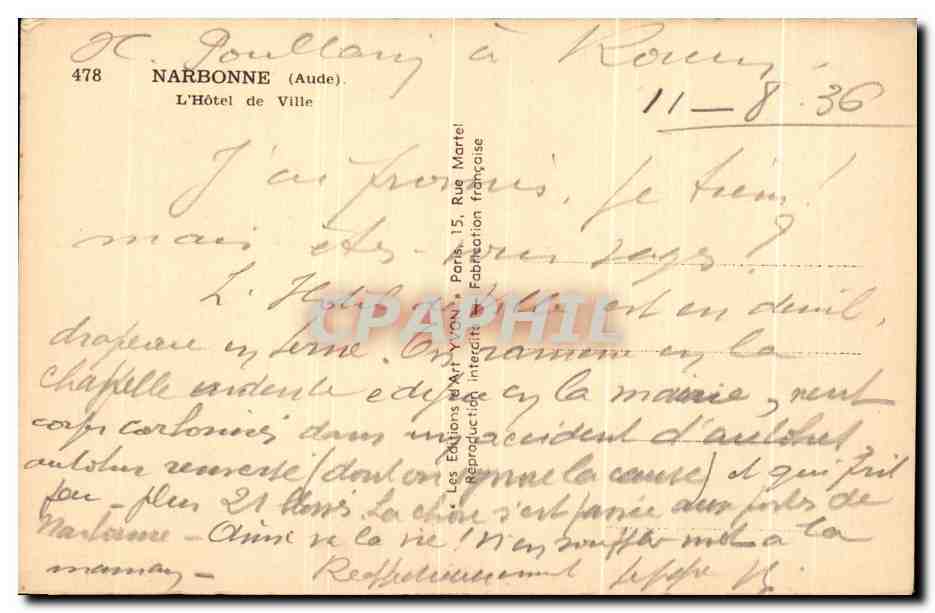 à
478 NARBONNE (Aude).
L'Hôtel de Ville
11 – 8. 36
J'ai promis, je tiens!
mais êtes-vous sages?
L'Hôtel de Ville est en deuil,
drapeau en berne. On ramène en la
chapelle ardente en la mairie, neuf
corps carbonisés dans un accident d'autobus,
autobus renversé (dont on ignore la cause) et qui prit
feu – plus 21 blessés. La chose s'est passée aux portes de
Narbonne – Ainsi va la vie! N'en souffler mot à la
maman – Respectueusement
Les Editions d'Art YVON, Paris, 15, Rue Martel
Reproduction interdite Fabrication française
CPAPHIL